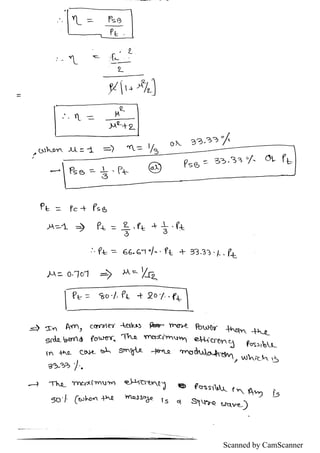 ∴ η = PSB / Pt
∴ η =
2
Pc [1 + μ²/2]
=
∴ η = μ² / μ²+2
, when μ=1 ⇒ η = 1/3 or 33.33%
→ PSB = 1/3 · Pt (or) PSB = 33.33% of Pt
Pt = Pc + PSB
μ=1 ⇒ Pt = 2/3 · Pt + 1/3 · Pt
∴ Pt = 66.67% · Pt + 33.33% · Pt
μ = 0.707 ⇒ μ = 1/√2
Pt = 80% Pt + 20% · Pt
⇒ In Am, carrier takes more power than the
side band power. The maximum efficiency possible
in the case of single tone modulation, which is
33.33 %.
→ The maximum efficiency possible in Am is
50% (when the message is a square wave)
Scanned by CamScanner